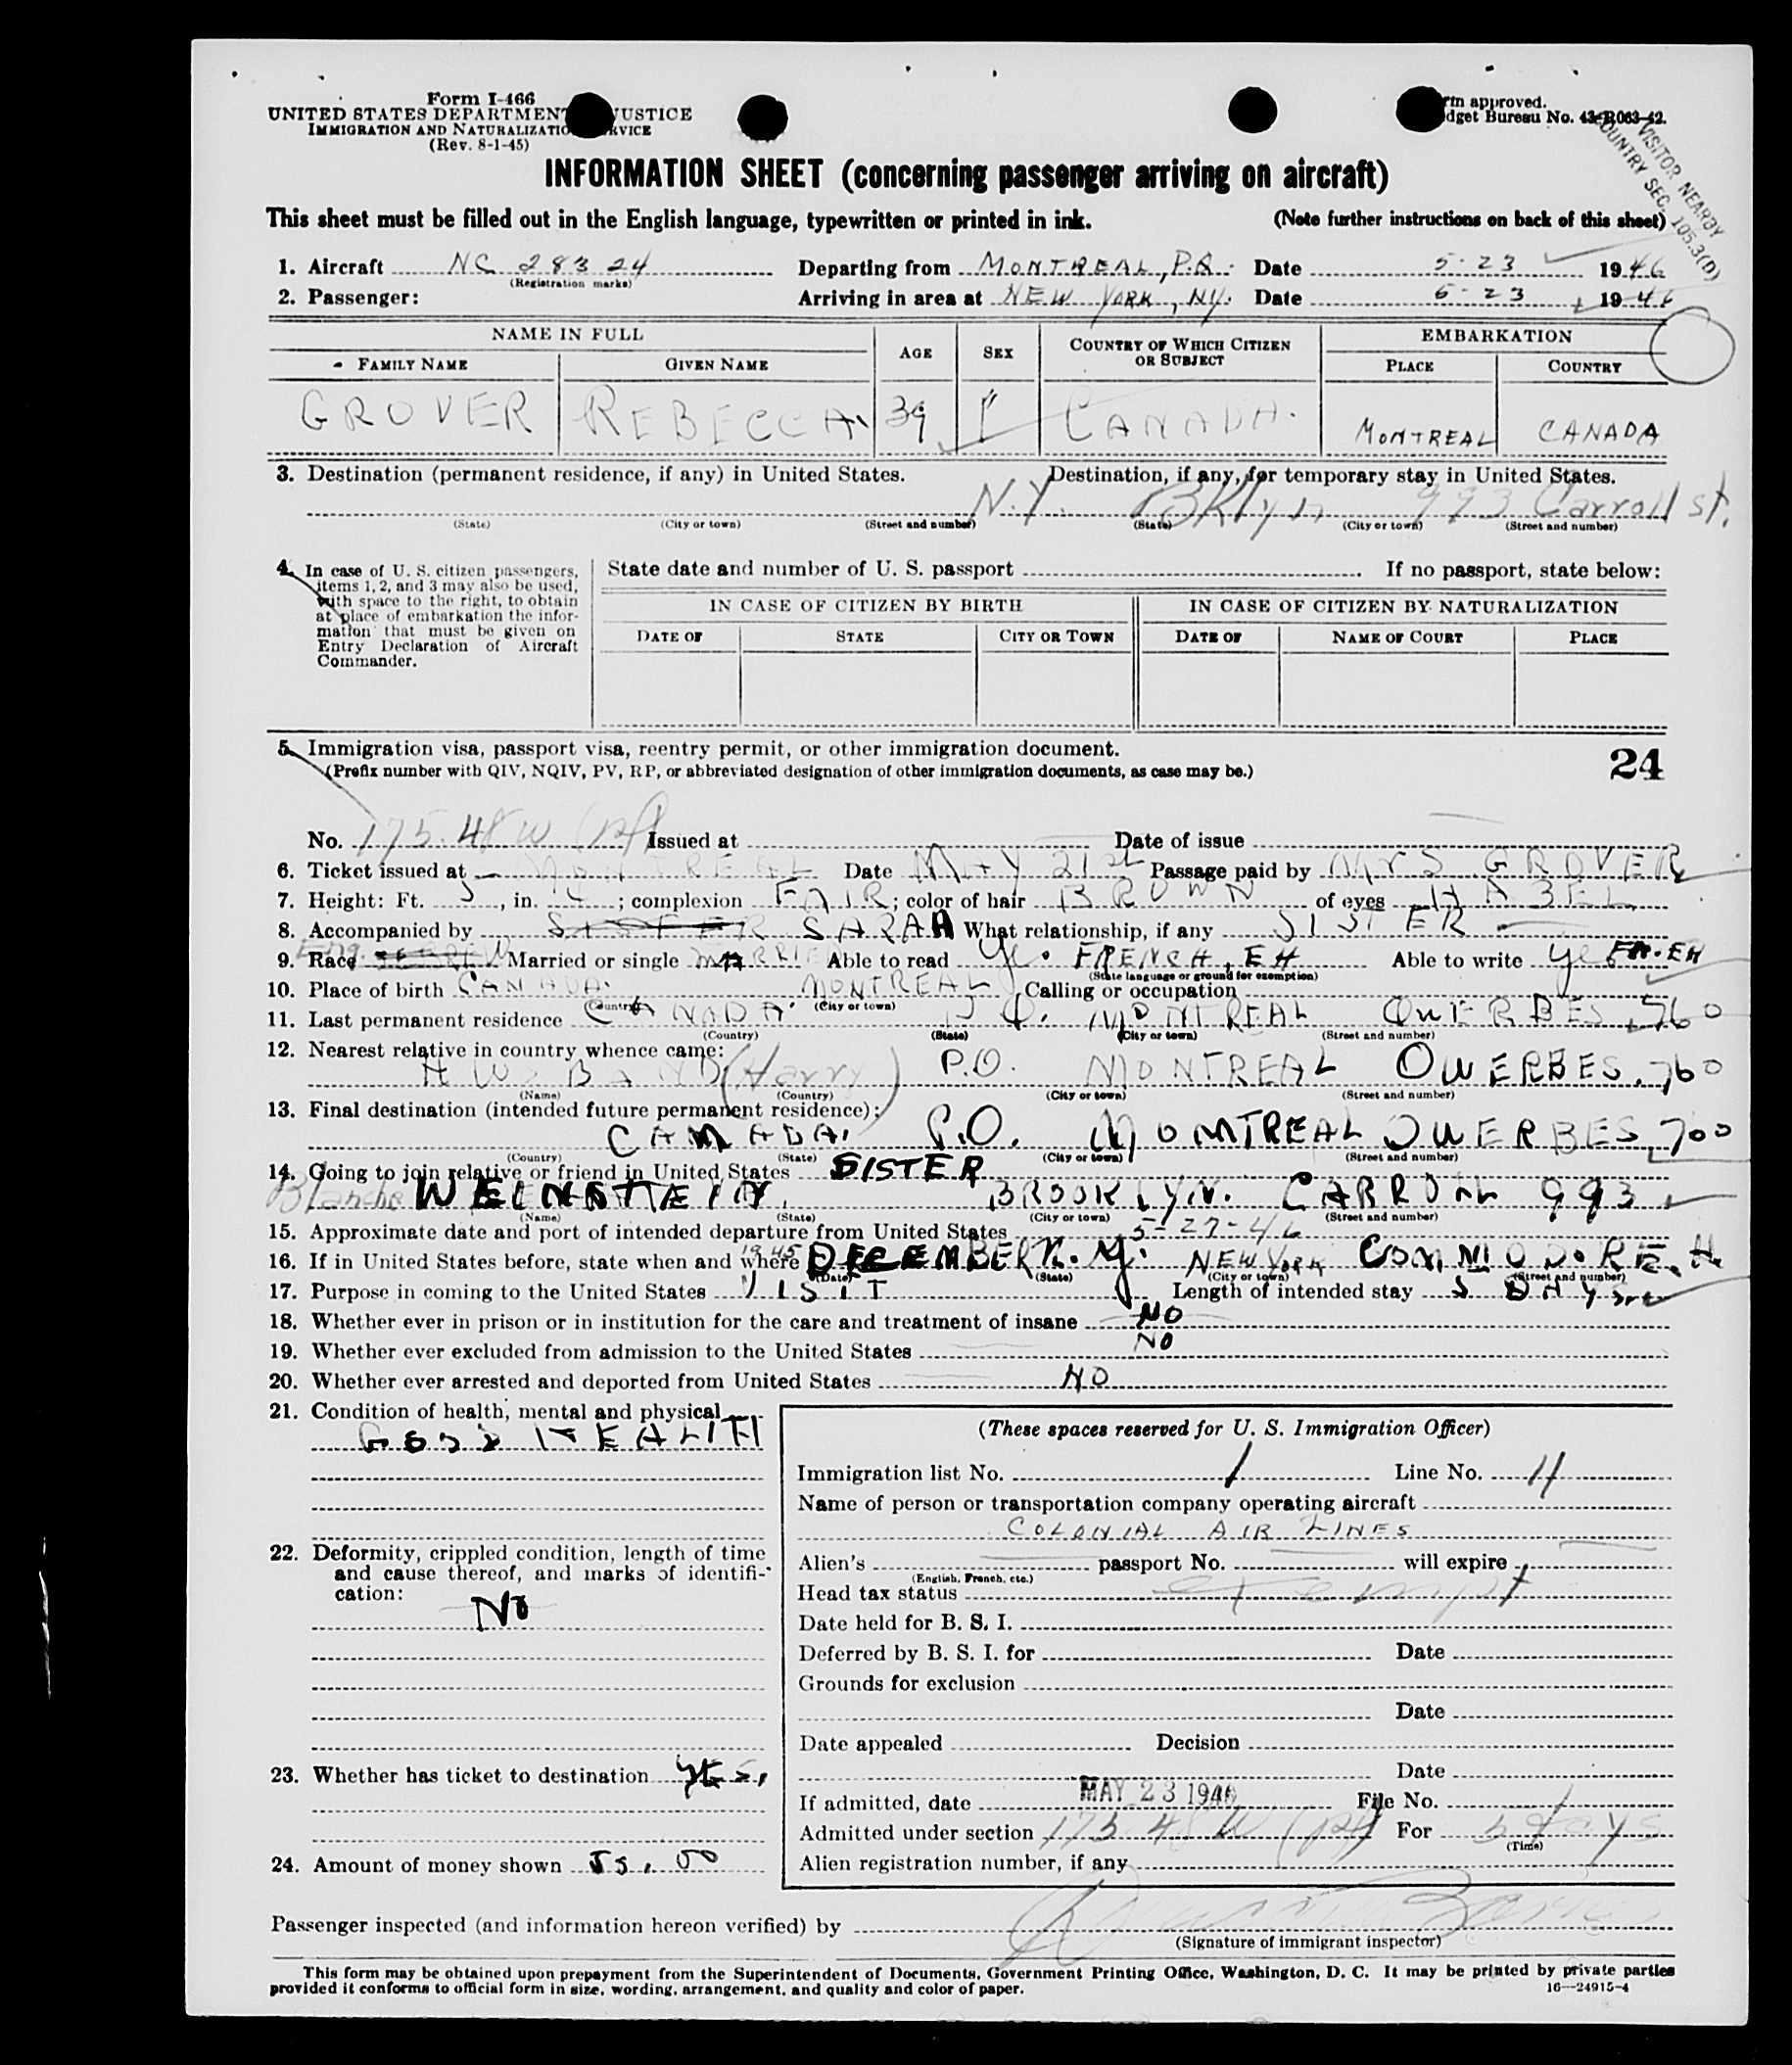 Form I-466
UNITED STATES DEPARTMENT JUSTICE
IMMIGRATION AND NATURALIZATIO RVICE
(Rev. 8-1-45)
rm approved.
dget Bureau No. 43-R063-42.
VISITOR NEARBY
COUNTRY SEC. 105.3(D)
INFORMATION SHEET (concerning passenger arriving on aircraft)
This sheet must be filled out in the English language, typewritten or printed in ink. (Note further instructions on back of this sheet)
1. Aircraft NC 28324 Departing from MONTREAL, P.Q. Date 5-23 1946
(Registration marks)
2. Passenger: Arriving in area at NEW YORK, NY. Date 5-23 1946
NAME IN FULL AGE SEX COUNTRY OF WHICH CITIZEN OR SUBJECT EMBARKATION
FAMILY NAME GIVEN NAME PLACE COUNTRY
GROVER REBECCA 39 F CANADA. MONTREAL CANADA
3. Destination (permanent residence, if any) in United States. Destination, if any, for temporary stay in United States.
N.Y. BKlyn 993 Carroll st.
(State) (City or town) (Street and number) (State) (City or town) (Street and number)
4. In case of U. S. citizen passengers, items 1, 2, and 3 may also be used, with space to the right, to obtain at place of embarkation the information that must be given on Entry Declaration of Aircraft Commander.
State date and number of U. S. passport If no passport, state below:
IN CASE OF CITIZEN BY BIRTH IN CASE OF CITIZEN BY NATURALIZATION
DATE OF STATE CITY OR TOWN DATE OF NAME OF COURT PLACE
5. Immigration visa, passport visa, reentry permit, or other immigration document. 24
(Prefix number with QIV, NQIV, PV, RP, or abbreviated designation of other immigration documents, as case may be.)
No. 175.48 W Issued at Date of issue
6. Ticket issued at MONTREAL Date MAY 21st Passage paid by Mrs GROVER
7. Height: Ft. 5, in. 4; complexion FAIR; color of hair BROWN of eyes HAZEL
8. Accompanied by SISTER SARAH What relationship, if any SISTER
9. Race Eng. Married or single MARRIE Able to read Ye. FRENCH, EH Able to write ye FR.EH
(State language or ground for exemption)
10. Place of birth CANADA. MONTREAL Calling or occupation
(Country) (City or town)
11. Last permanent residence CANADA. P.Q. MONTREAL OWERBES, 760
(Country) (State) (City or town) (Street and number)
12. Nearest relative in country whence came:
HUSBAND (Harry) P.Q. MONTREAL OWERBES, 760
(Name) (Country) (City or town) (Street and number)
13. Final destination (intended future permanent residence):
CANADA. P.Q. MONTREAL OWERBES, 700
(Country) (State) (City or town) (Street and number)
14. Going to join relative or friend in United States SISTER
Blanche WEINSTEIN, BROOKLYN. CARROLL 993
(Name) (State) (City or town) (Street and number)
15. Approximate date and port of intended departure from United States 5-27-46
16. If in United States before, state when and where 1945 DECEMBER N.Y. NEW YORK COMMODORE. H.
(Date) (State) (City or town) (Street and number)
17. Purpose in coming to the United States VISIT Length of intended stay 5 DAYS
18. Whether ever in prison or in institution for the care and treatment of insane NO
19. Whether ever excluded from admission to the United States NO
20. Whether ever arrested and deported from United States NO
21. Condition of health, mental and physical
GOOD HEALTH
22. Deformity, crippled condition, length of time and cause thereof, and marks of identification:
NO
23. Whether has ticket to destination YES.
24. Amount of money shown 55.00
(These spaces reserved for U. S. Immigration Officer)
Immigration list No. 1 Line No. 11
Name of person or transportation company operating aircraft
COLONIAL AIR LINES
Alien's passport No. will expire
(English, French, etc.)
Head tax status exempt
Date held for B. S. I.
Deferred by B. S. I. for Date
Grounds for exclusion
Date
Date appealed Decision
Date
If admitted, date MAY 23 1946 File No.
Admitted under section 175.48 W For 5 days
(Time)
Alien registration number, if any
Passenger inspected (and information hereon verified) by
(Signature of immigrant inspector)
This form may be obtained upon prepayment from the Superintendent of Documents, Government Printing Office, Washington, D. C. It may be printed by private parties
provided it conforms to official form in size, wording, arrangement, and quality and color of paper. 16—24915-4